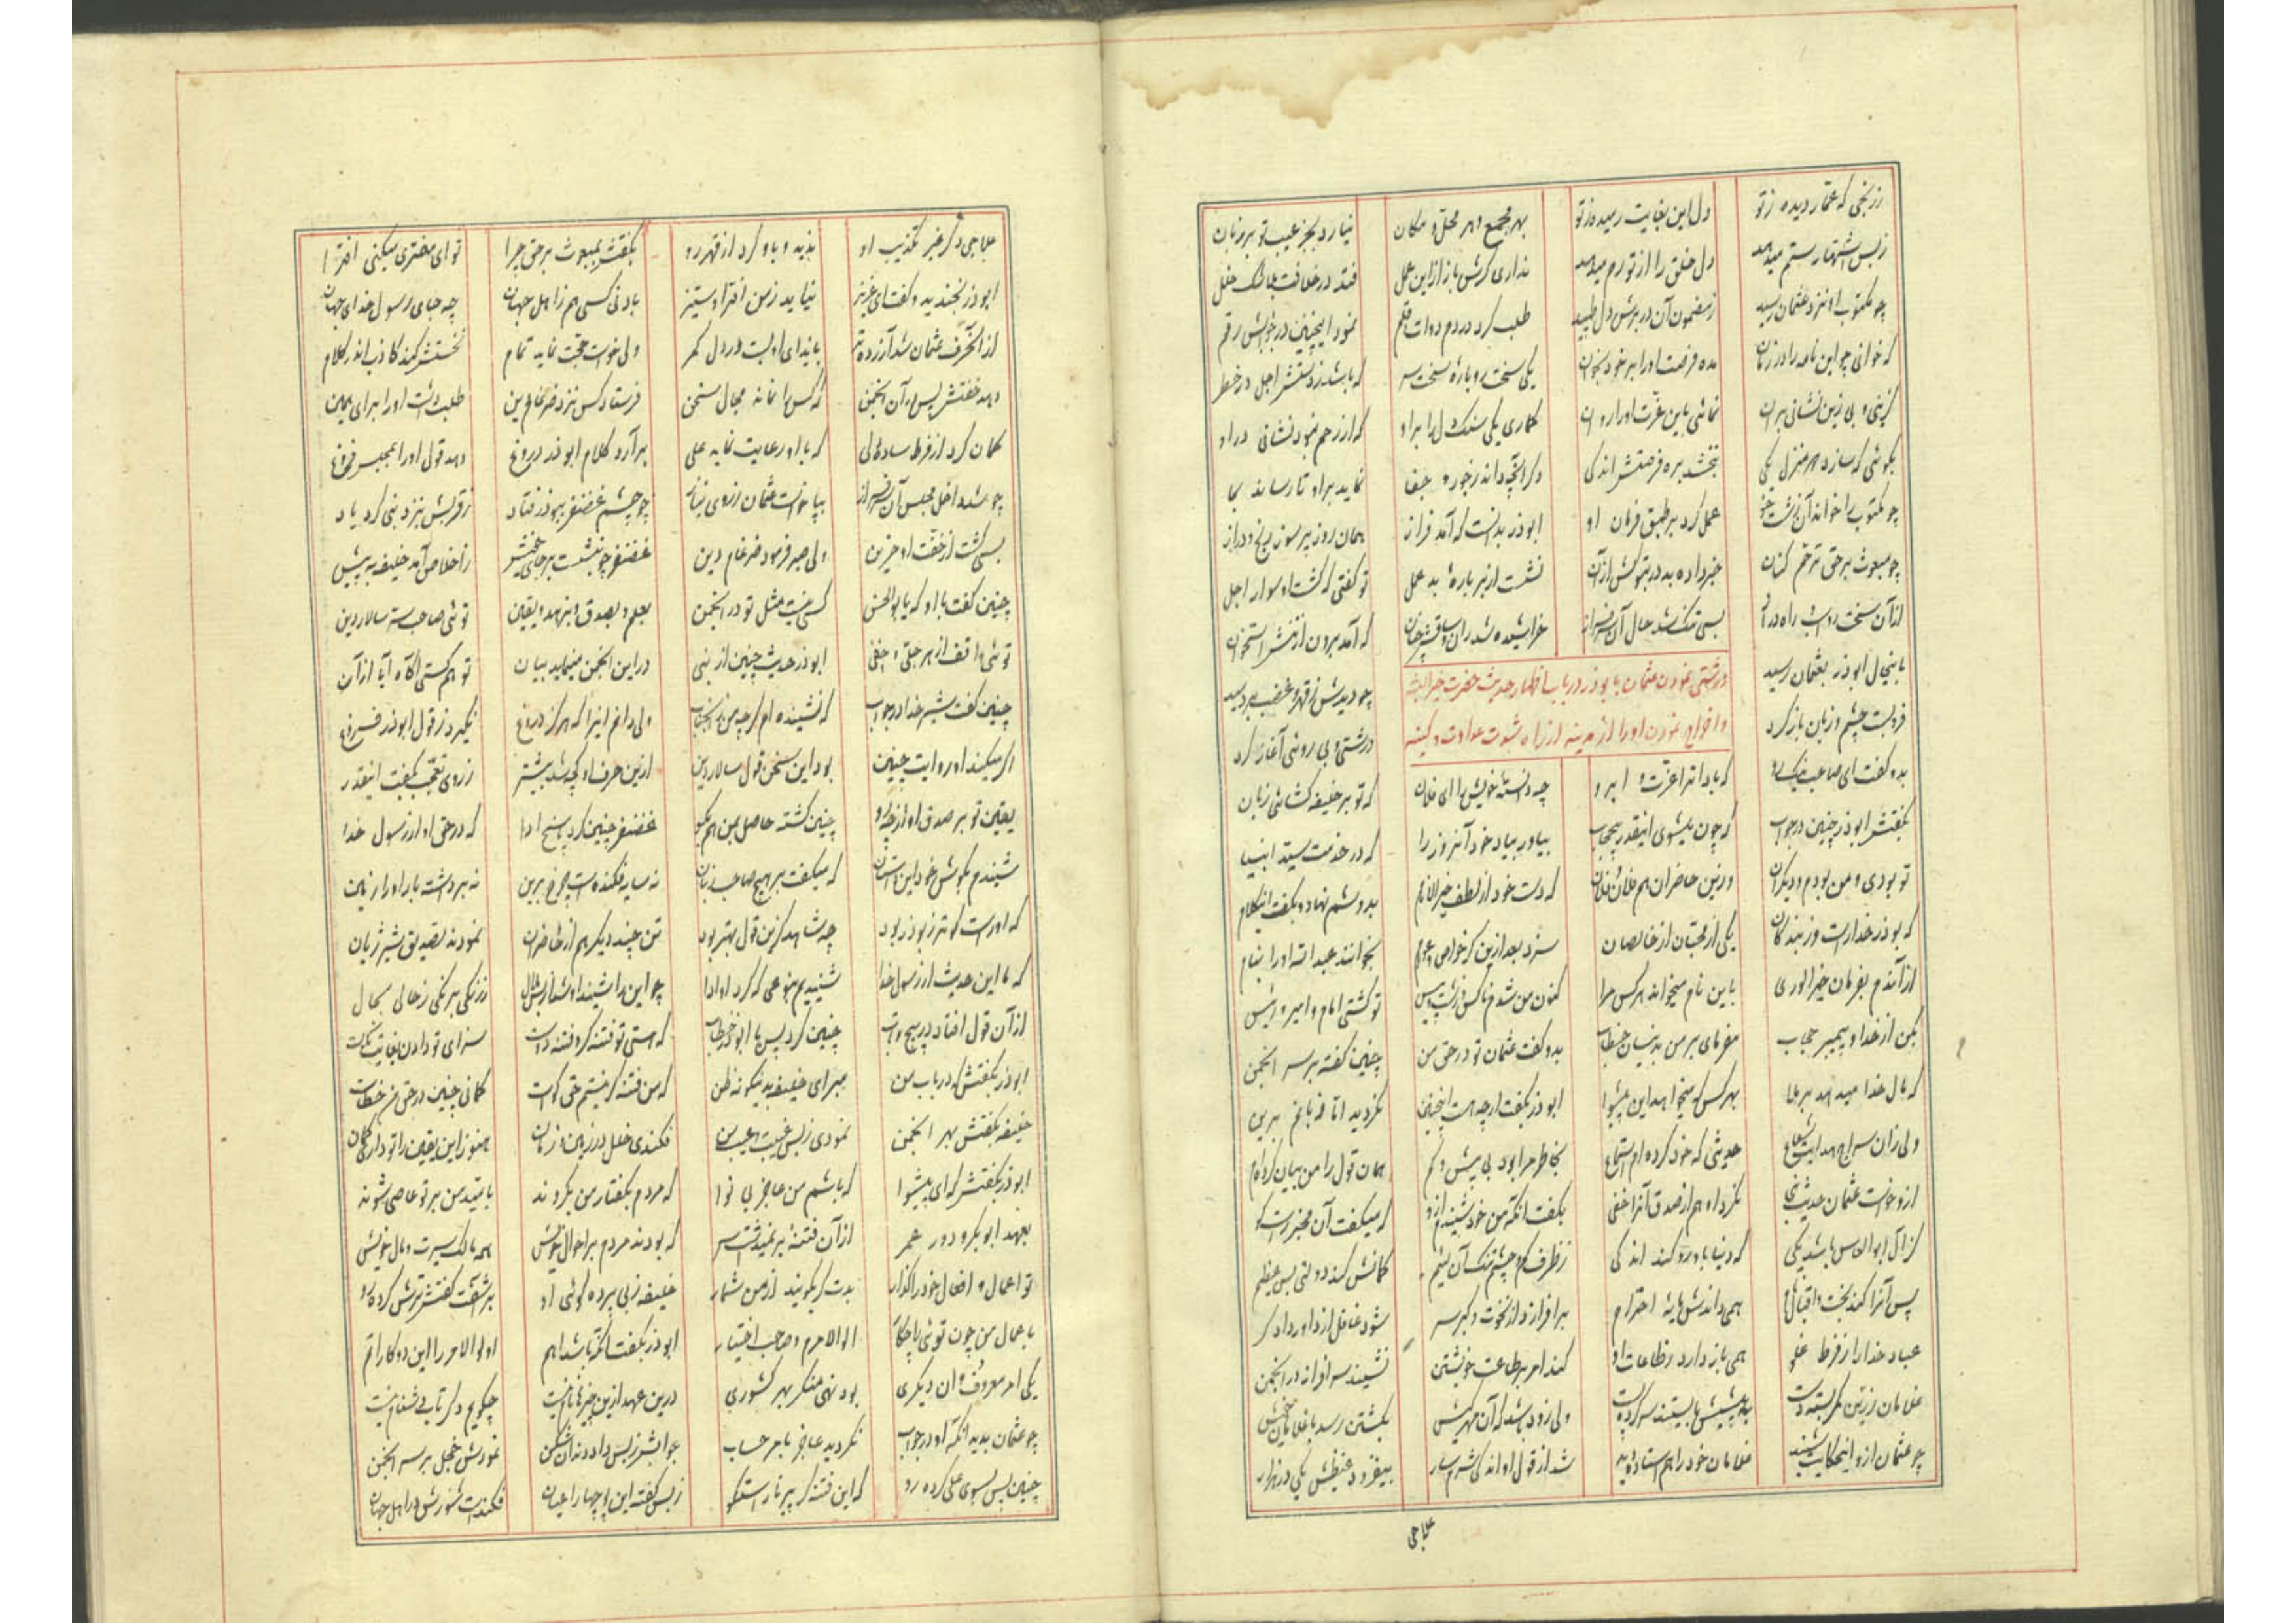 ز رنجی که عمّار دیده ز تو دل این بغایت رسیده ز تو بهر مجمع و هر محل و مکان نیارد بجز عیب تو بر زبان
ز بس اشتهار ستم میدهد دل خلق را از تو رم میدهد نداری گرش باز ازاین عمل فتد در خلافت بلاشک خلل
چو مکتوب او نزد عثمان رسید ز مضمون آن در برش دل طپید طلب کرد در دم دوات و قلم نمود اینچنین در جوابش رقم
که خوانی چو این نامه را در زمان مده فرصت او را بر خود بخوان یکی سخت رو باره سخت سر که باشد ز پشتش اجل در خطر
گزینی و بی زین نشانی بر آن نمائی باین عزّت او را روان گماری یکی سنگ دل را بر او که از رحم نبود نشانی در او
بگوئی که سازد دو منزل یکی نبخشد بره فرصتش اندکی دگر آنچه داند ز جور و جفا نماید بر او تا رساند بما
چو مکتوب را خواند آن زشت خو عمل کرد بر طبق فرمان او ابوذر بدانست که آمد فراز همان روز پر سوز رنج دراز
چو مبعوث بر حق ترحّم کنان خبر داده بد در تبوکش از آن نشست از بر باره بد عمل تو گفتی که گشت او سوار اجل
از آن سخت دواب راه دراز بسی تنگ شد حال آن سرفراز خراشیده شد ران و ساقش چنان که آمد برون از تنش استخوان
درشتی نمودن عثمان با بوذر در باب اظهار حدیث حضرت خیرالبشر
و اخراج نمودن او را از مدینه از راه شدت عداوت و کینه
باینحال ابوذر بعثمان رسید چو دیدش ز قهر و غضب بردمید
فروبست چشم و زبان باز کرد درشتی و بی روئی آغاز کرد
بدو گفت ای صاحب نیک رو که بادا ترا عزّت و ابرو چه دانسته خویش را ای فلان که تو بر خلیفه گشائی زبان
بگفتش ابوذر چنین در جواب که چون میشوی اینقدر بیحجاب بیاور بیاد خود آنروز را که در خدمت سیّد انبیا
تو بودی و من بودم و دیگران وزین حاضران هم فلان و فلان که دست خود از لطف خیرالانام بدوشم نهاد و بگفت اینکلام
که بوذر خدا راست از بندگان یکی از محبّان از خالصان سزد بعد ازین گر خواص و عوام بخوانند عبد الله او را بنام
از آندم بفرمان خیرالوری باین نام میخواند هر کس مرا کنون من شدم ناکس و زشت و پس تو گشتی امام و امیر و رئیس
بکن از خدا و پیمبر حجاب مفرمای بر من بدینسان خطاب بدو گفت عثمان تو در حق من چنین گفته بر سر انجمن
که مال خدا میدهد بر ملا بهر کس که میخواهد این پیشوا ابوذر بگفت ار چه هست اینچنین نگردید اما زبانم برین
ولی زان سراج هدایت شعاع حدیثی که خود کرده ام استماع بخاطر مرا بود بی بیش و کم همان قول را من بیان کرده ام
ازو خواست عثمان حدیث نبی نکرد او هم از صدق آنرا خفی بگفت آنکه من خود شنیدم ازو که میگفت آن مخبر راست گو
کز آل ابوالعاص باشد یکی که دنیا باو رو کند اندکی ز ظرف کم و چشم تنگ آن لئیم گمانش کند دولتی بس عظیم
پس آنرا کند بخت و اقبال نام همی داندش مایه احترام برافرازد از نخوت و کبر سر شود غافل از داور دادگر
عباد خدا را از فرط غلو همی باز دارد ز طاعات او کند امر بر طاعت خویشتن نشیند سرافرازانه در انجمن
غلامان زرّین کمر بسته دست به پیشش بایستند سر کرده پست ولی زود باشد که آن مهرکیش بکشتن رسد با غلامان خویش
چو عثمان ازو اینحکایت شنید غلامان خود را هم استاده دید شد از قول او اندکی شرمسار بیفزود غیظش یکی در هزار
علاجی
علاجی دگر غیر تکذیب او ندید و باو کرد از قهر رو بگفتش بمبعوث بر حق چرا تو ای مفتری میکنی افترا
ابوذر بخندید و گفت ای عزیز نیاید ز من افترا و ستیز بادنی کسی هم ز اهل جهان چه جبای رسول خدای جهان
از آنحرف عثمان شد آزرده تر بایذای او بست در دل کمر ولی خواست حجّت نماید تمام نخستش کند کاذب اندر کلام
دهد خفّتش پس در آن انجمن که کس را نماند مجال سخن فرستاد کس نزد ضرغام دین طلب داشت او را برای همین
گمان کرد از فرط ساده دلی که با او رعایت نماید علی برآرد کلام ابوذر دروغ دهد قول او را بمجلس فروغ
چو شد داخل مجلس آن سرفراز بپا خواست عثمان ز روی نیاز چو چشم غضنفر ببوذر فتاد ز قربش بنزد نبی کرد یاد
بسی گشت از خفّت او حزین ولی صبر فرمود ضرغام دین غضنفر چو بنشست بر جای خویش ز اخلاص آمد خلیفه به پیش
چنین گفت با او که یا بوالحسن کسی نیست مثل تو در انجمن بعلم و بصدق و بزهد و یقین توئی صاحب سنّت سالار دین
توئی واقف از هر جلی و خفی ابوذر حدیث چنین از نبی در این انجمن مینماید بیان تو هم گشتی آگاه آیا از آن
چنین گفت شیر خدا در جواب که نشنیده ام گرچه من زانجناب ولی دانم اینرا که هرگز دروغ نگیرد ز قول ابوذر فروغ
اگر میکند او روایت چنین بود این سخن قول سالار دین ازین حرف او کج شد بیشتر ز روی تعجّب بگفت اینقدر
یقین تو بر صدق او از چه رو چنین گشته حاصل بمن هم بگو غضنفر چنین کرد پاسخ ادا که در حق او از رسول خدا
شنیدم بگوش خود این داستان که میگفت بر هیچ صاحب زبان نه سایه فکنده است چرخ برین نه برداشت بار او را زمین
که او راست گوتر ز بوذر بود چه شاهد کزین قول بهتر بود تن چند دیگر هم از حاضران نمودند تصدیق شیر ژیان
که ما این حدیث از رسول خدا شنیدیم بنوعی که کرد او ادا چو این را شنید او شد ز رنگی برنگی ز حالی بحال
از آن قول افتاد در پیچ و تاب چنین کرد پس با ابوذر خطاب که هستی تو فتنه گر و فتنه دوست سزای تو دادن بغایت نکوست
ابوذر بگفتش که در باب من مبر ای خلیفه بدینگونه ظن که من فتنه گر نیستم حق گواست گمانی چنین در حق من خطاست
خلیفه بگفتش بهر انجمن نمودی ز بس غیبت و عیب من فکندی خلل در زمین و زمان هنوز این یقین را تو داری گمان
ابوذر بگفتش که ای پیشوا که باشم من عاجز بی نوا که مردم بگفتار من بگروند بامّید من بر تو عاصی شوند
بعهد ابوبکر و دور عمر از آن فتنه برنمیداشت سر که بودند مردم بر احوال خویش همه مالک سیرت و مال خویش
تو اعمال و افعال خود را گذار بدت گر بگویند از من شمار خلیفه ز بی پرده گوئی او برآشفت گفتش ترش کرده رو
باعمال من چون توئی را چکار اولو الامرم و صاحب اختیار ابوذر بگفت آنکه باشد اهم اولو الامر را این دو کار اتم
یکی امر معروف و آن دیگری بود نهی منکر بهر کشوری درین عهد ازین چیزها نام نیست چگویم دگر تاب دشنام نیست
چو عثمان بدید آنکه او در جواب نگردید عاجز بامر حساب جوابش ز بس داد دندان شکن نمودش خجل بر سر انجمن
چنین پس بسوی علی کرده رو که این فتنه گر پیر ناراستگو ز بس گفته این و چها را عیان فکنداست شورش در اهل جهان